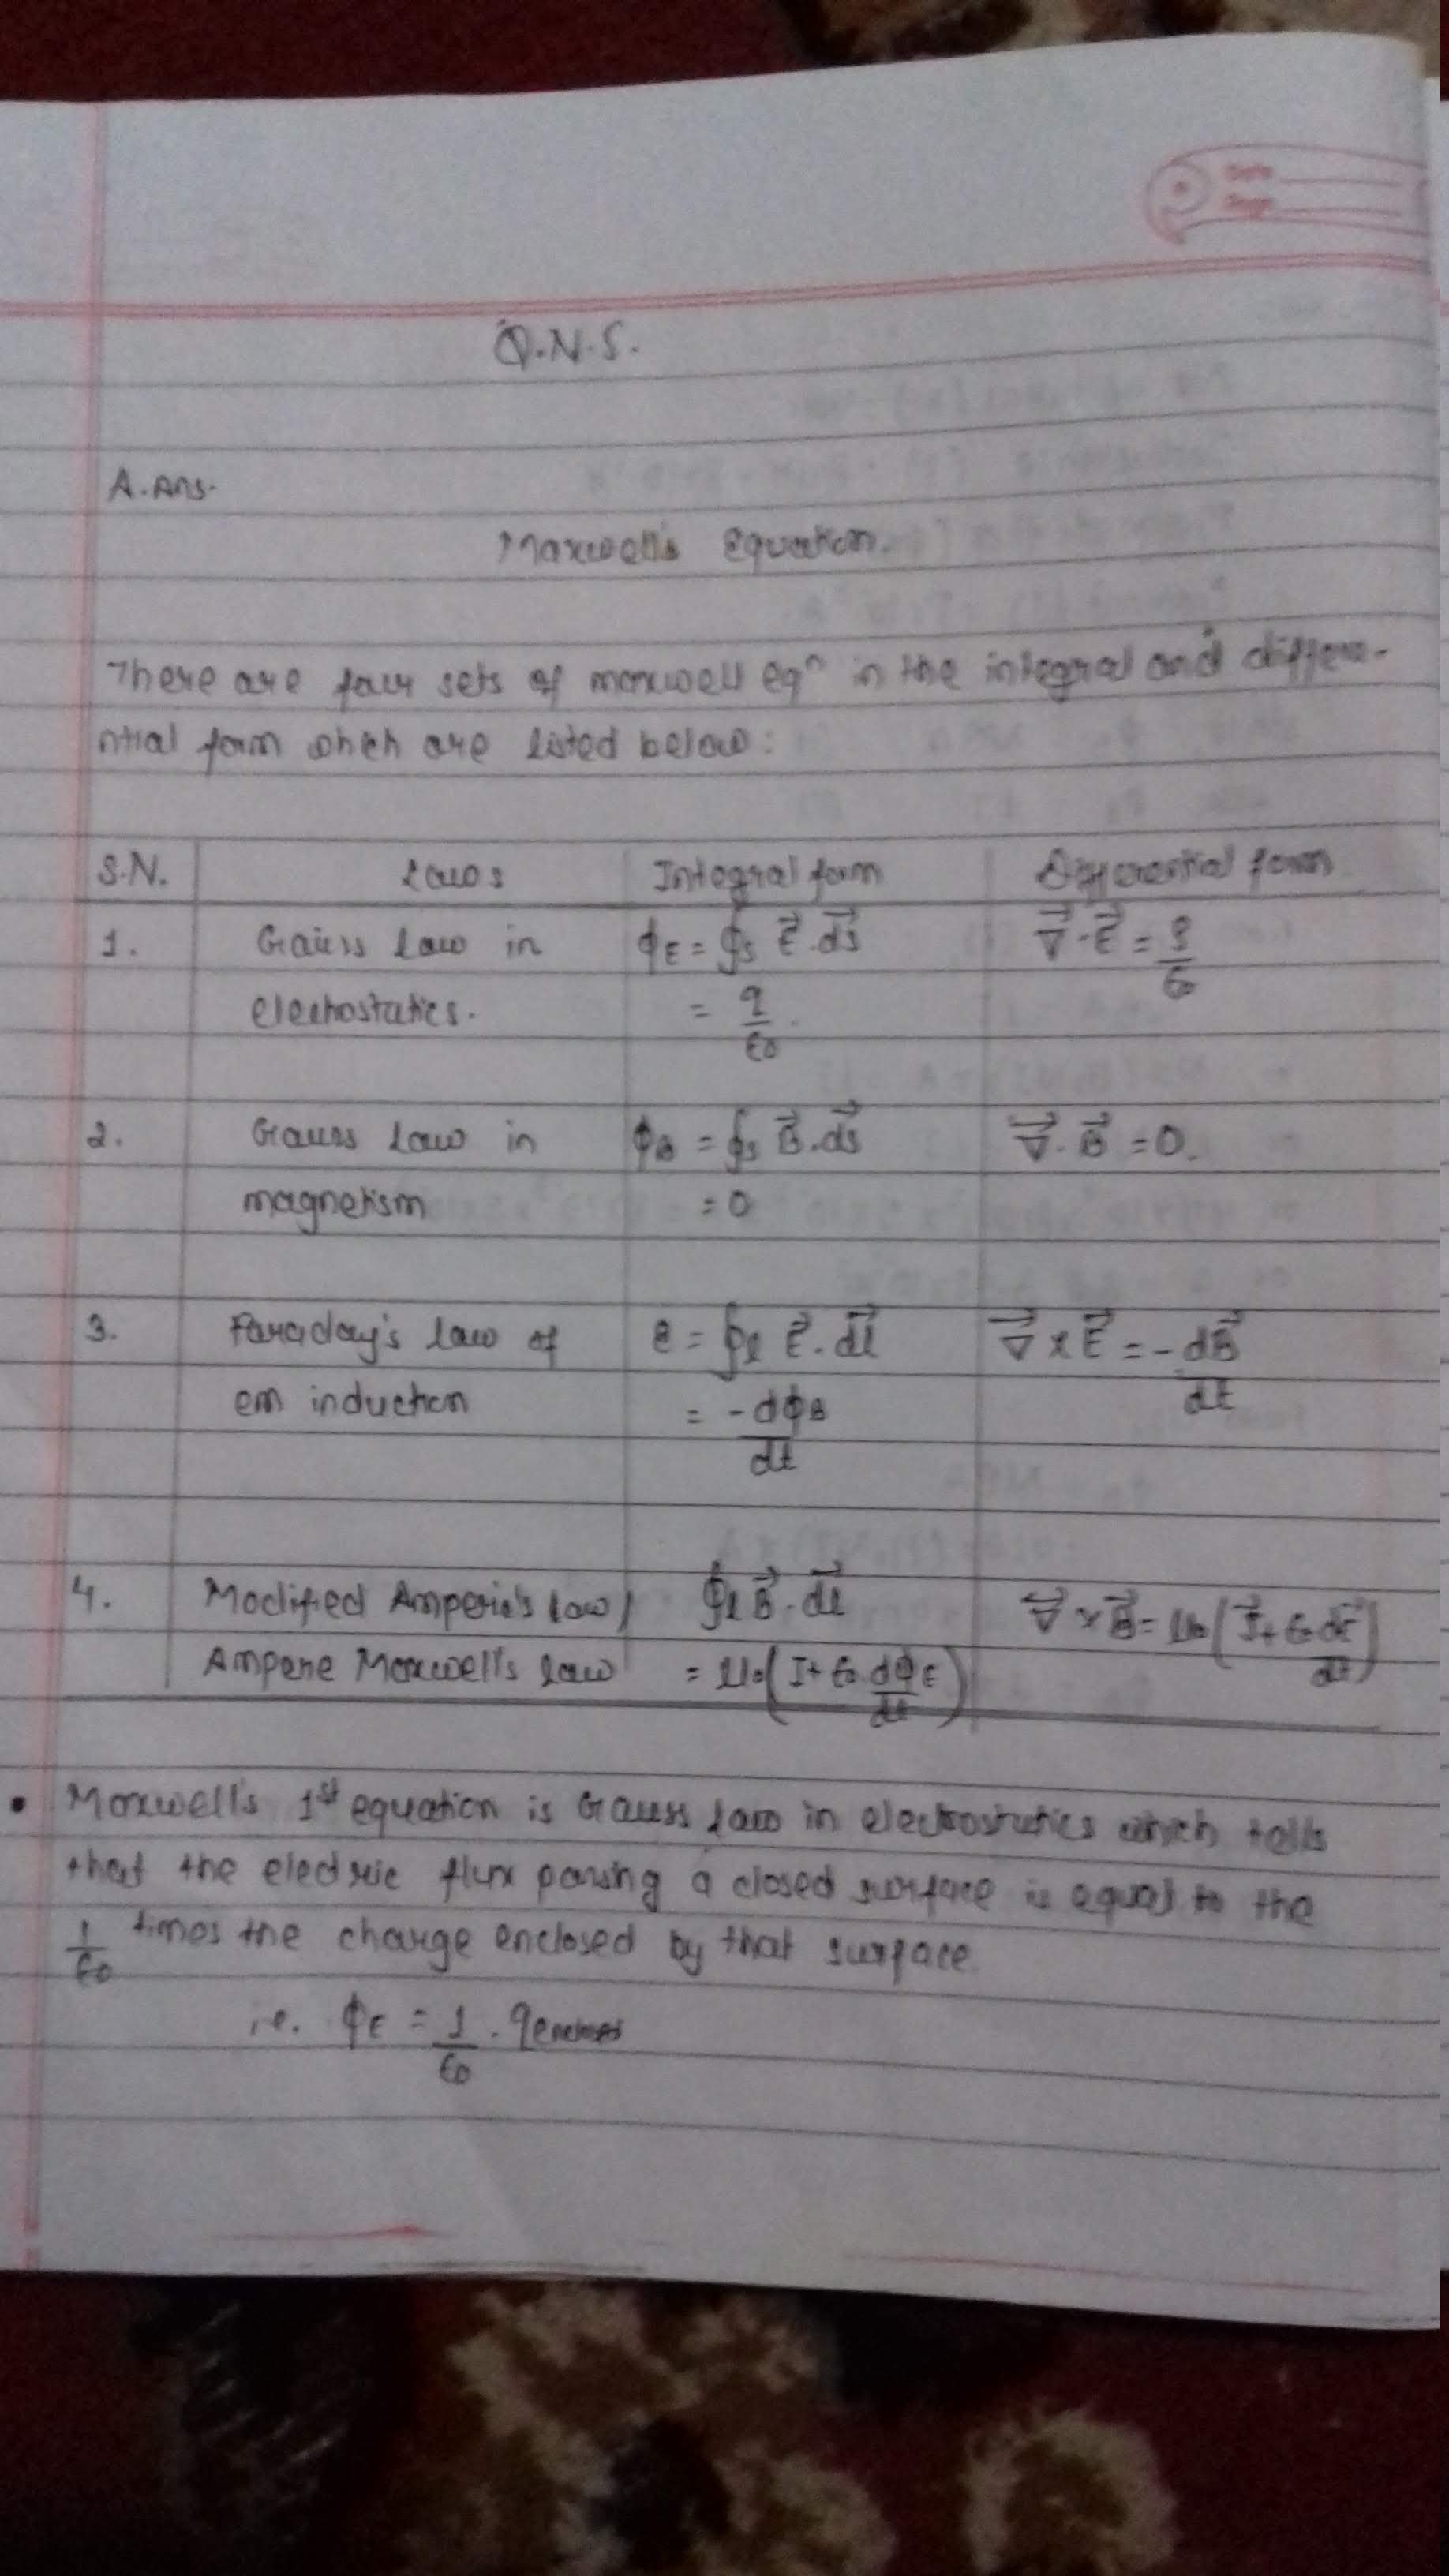 Date
Page
Q.N.5.
A.Ans.
Maxwell's Equation.
There are four sets of maxwell eqⁿ in the integral and differe-
ntial form which are listed below:
S.N. Laws Integral form Differential form
1. Gauss law in ϕE = ∮s E⃗.ds⃗ ∇⃗.E⃗ = ρ/ε0
electrostatics. = q/ε0.
2. Gauss Law in ϕB = ∮s B⃗.ds⃗ ∇⃗.B⃗ = 0.
magnetism = 0
3. Faraday's law of e = ∮l E⃗.dl⃗ ∇⃗×E⃗ = -dB⃗/dt
em induction = -dϕB/dt
4. Modified Amperie's law/ ∮l B⃗.dl⃗ ∇⃗×B⃗ = μ0(J⃗+ε0 dE⃗/dt)
Ampere Maxwell's law = μ0(I+ε0 dϕE/dt)
• Maxwell's 1st equation is Gauss law in electrostatics which tells
that the electric flux passing a closed surface is equal to the
1/ε0 times the charge enclosed by that surface
i.e. ϕE = 1/ε0 . qenclosed